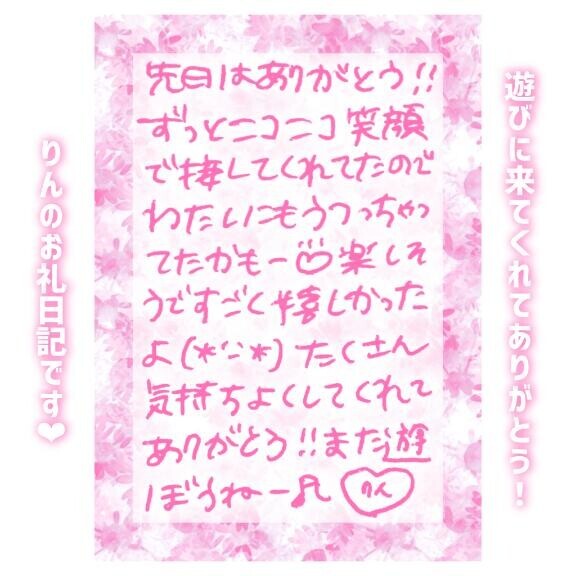 遊びに来てくれてありがとう！
先日はありがとう!!
ずっとニコニコ笑顔
で接してくれてたので
わたしにもうつっちゃっ
てたかもー♡楽しそ
うですごく嬉しかった
よ(*'ー'*)たくさん
気持ちよくしてくれて
ありがとう!!また遊
ぼうねー♬ りん
りんのお礼日記です❤